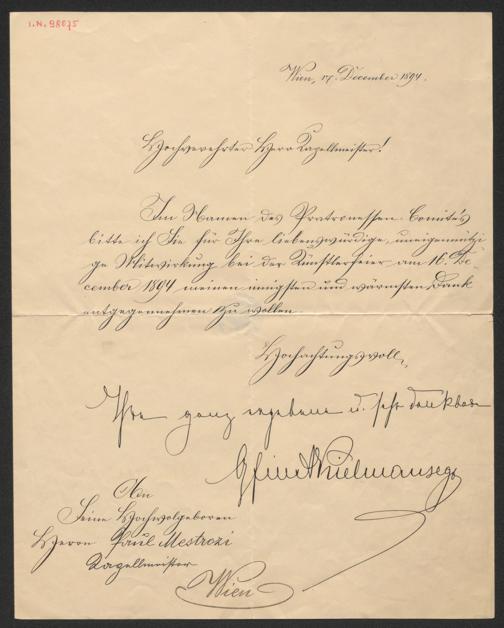 I.N. 98075
Wien, 17. December 1894.
Hochverehrter Herr Kapellmeister!
Im Namen des Patronessen-Comités
bitte ich Sie für Ihre liebenswürdige, uneigennützi
ge Mitwirkung bei der Künstlerfeier am 16. De-
cember 1894 meinen innigsten und wärmsten Dank
entgegennehmen zu wollen.
Hochachtungsvoll
Ihre ganz ergebene u. sehr dankbare
Kielmansegg
An
Seine Hochwolgeboren
Herrn Paul Mestrozi
Kapellmeister
Wien